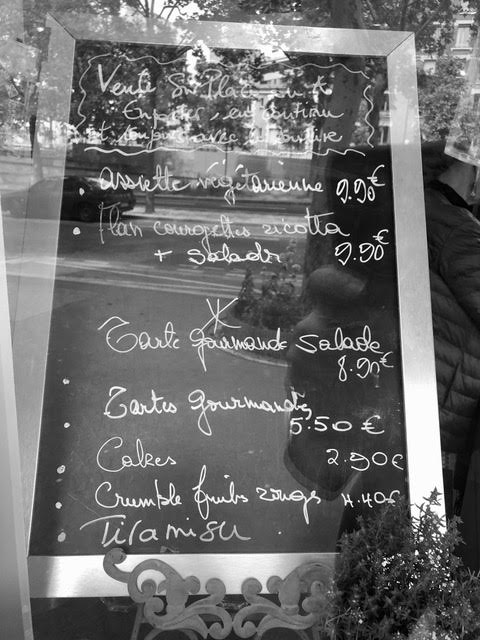 Vente Sur Place ou à
Emporter, en continu
et toujours avec le sourire
Assiette végétarienne 9.90€
Flan courgettes ricotta
+ salade 9.90€
Tarte gourmande salade
8.90€
Tartes gourmandes
5.50€
Cakes 2.90€
Crumble fruits rouges 4.40€
Tiramisu